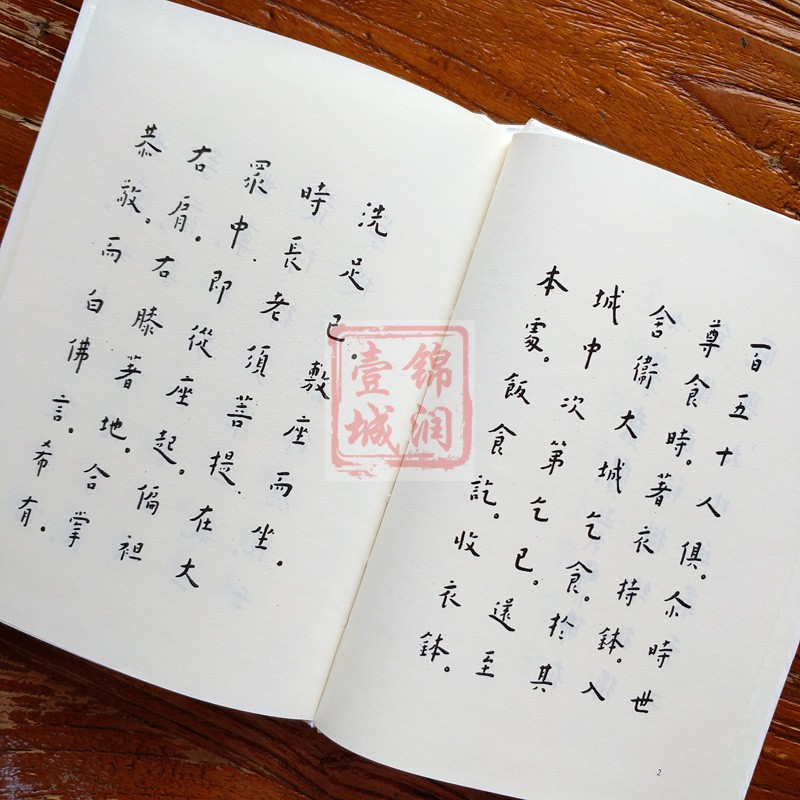 百五十人俱。尒時世
尊食時。著衣持鉢。入
舍衛大城乞食。於其
城中次第乞已。還至
本處。飯食訖。收衣鉢。
2
洗足已。敷座而坐。
時長老須菩提、在大
眾中、即從座起。偏袒
右肩。右膝著地。合掌
恭敬。而白佛言。希有。
锦润
壹城